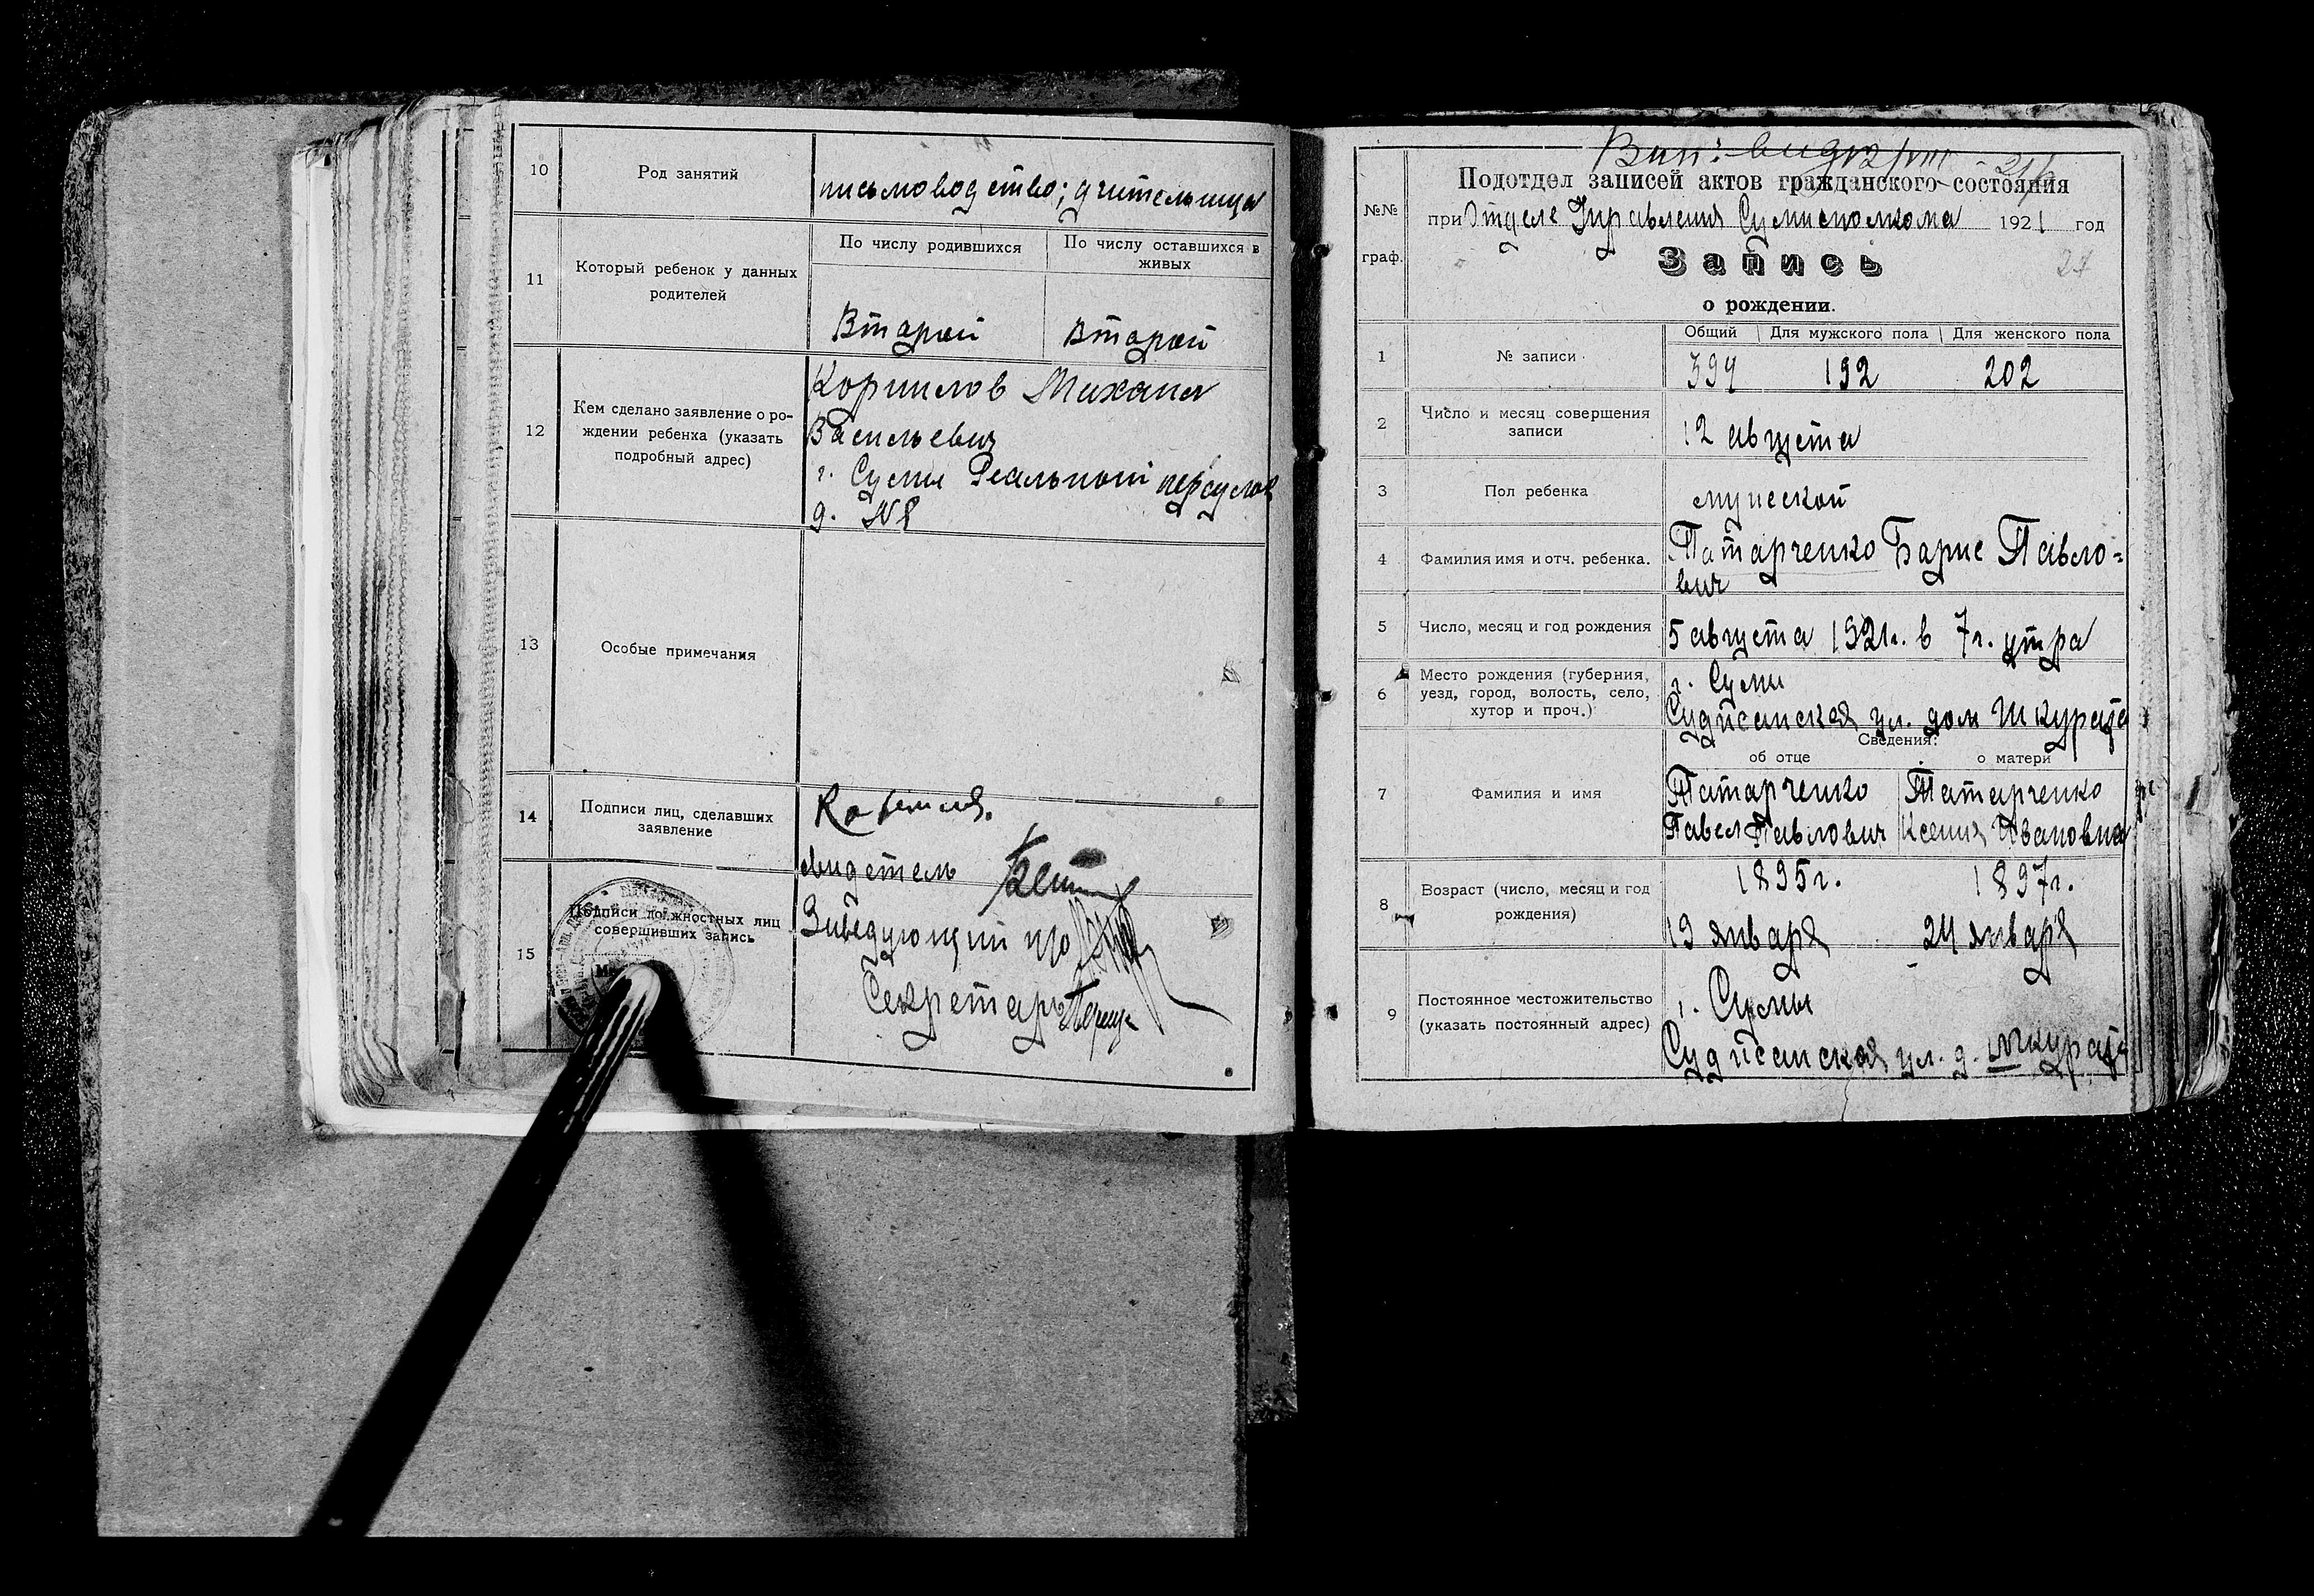 10
Род занятий
письмоводство; учительница
11
Который ребенок у данных
родителей
По числу родившихся
По числу оставшихся в
живых
Второй
Второй
12
Кем сделано заявление о ро-
ждении ребенка (указать
подробный адрес)
Корнилов Михаил
Васильевич
г. Сумы Реальный переулок
д. №8
13
Особые примечания
14
Подписи лиц, сделавших
заявление
свидетель
15
Подписи должностных лиц
совершивших запись
Заведующий п/о
Секретарь
Подотдел записей актов гражданского состояния
№№
граф.
при Отделе Управления Сумисполкома 1921 год
Запись
27
о рождении.
1
№ записи
Общий
Для мужского пола
Для женского пола
394
192
202
2
Число и месяц совершения
записи
12 августа
3
Пол ребенка
мужской
4
Фамилия имя и отч. ребенка.
Татарченко Борис Павло=
вич
5
Число, месяц и год рождения
5 августа 1921г. в 7 г. утра
6
Место рождения (губерния,
уезд, город, волость, село,
хутор и проч.)
г. Сумы
Суджанская ул. дом Шкурата
7
Фамилия и имя
Сведения:
об отце
о матери
Татарченко
Павел Павлович
Татарченко
Ксения Ивановна
8
Возраст (число, месяц и год
рождения)
1895г.
19 января
1897г.
24 января
9
Постоянное местожительство
(указать постоянный адрес)
г. Сумы
Суджанская ул. д. Шкурата